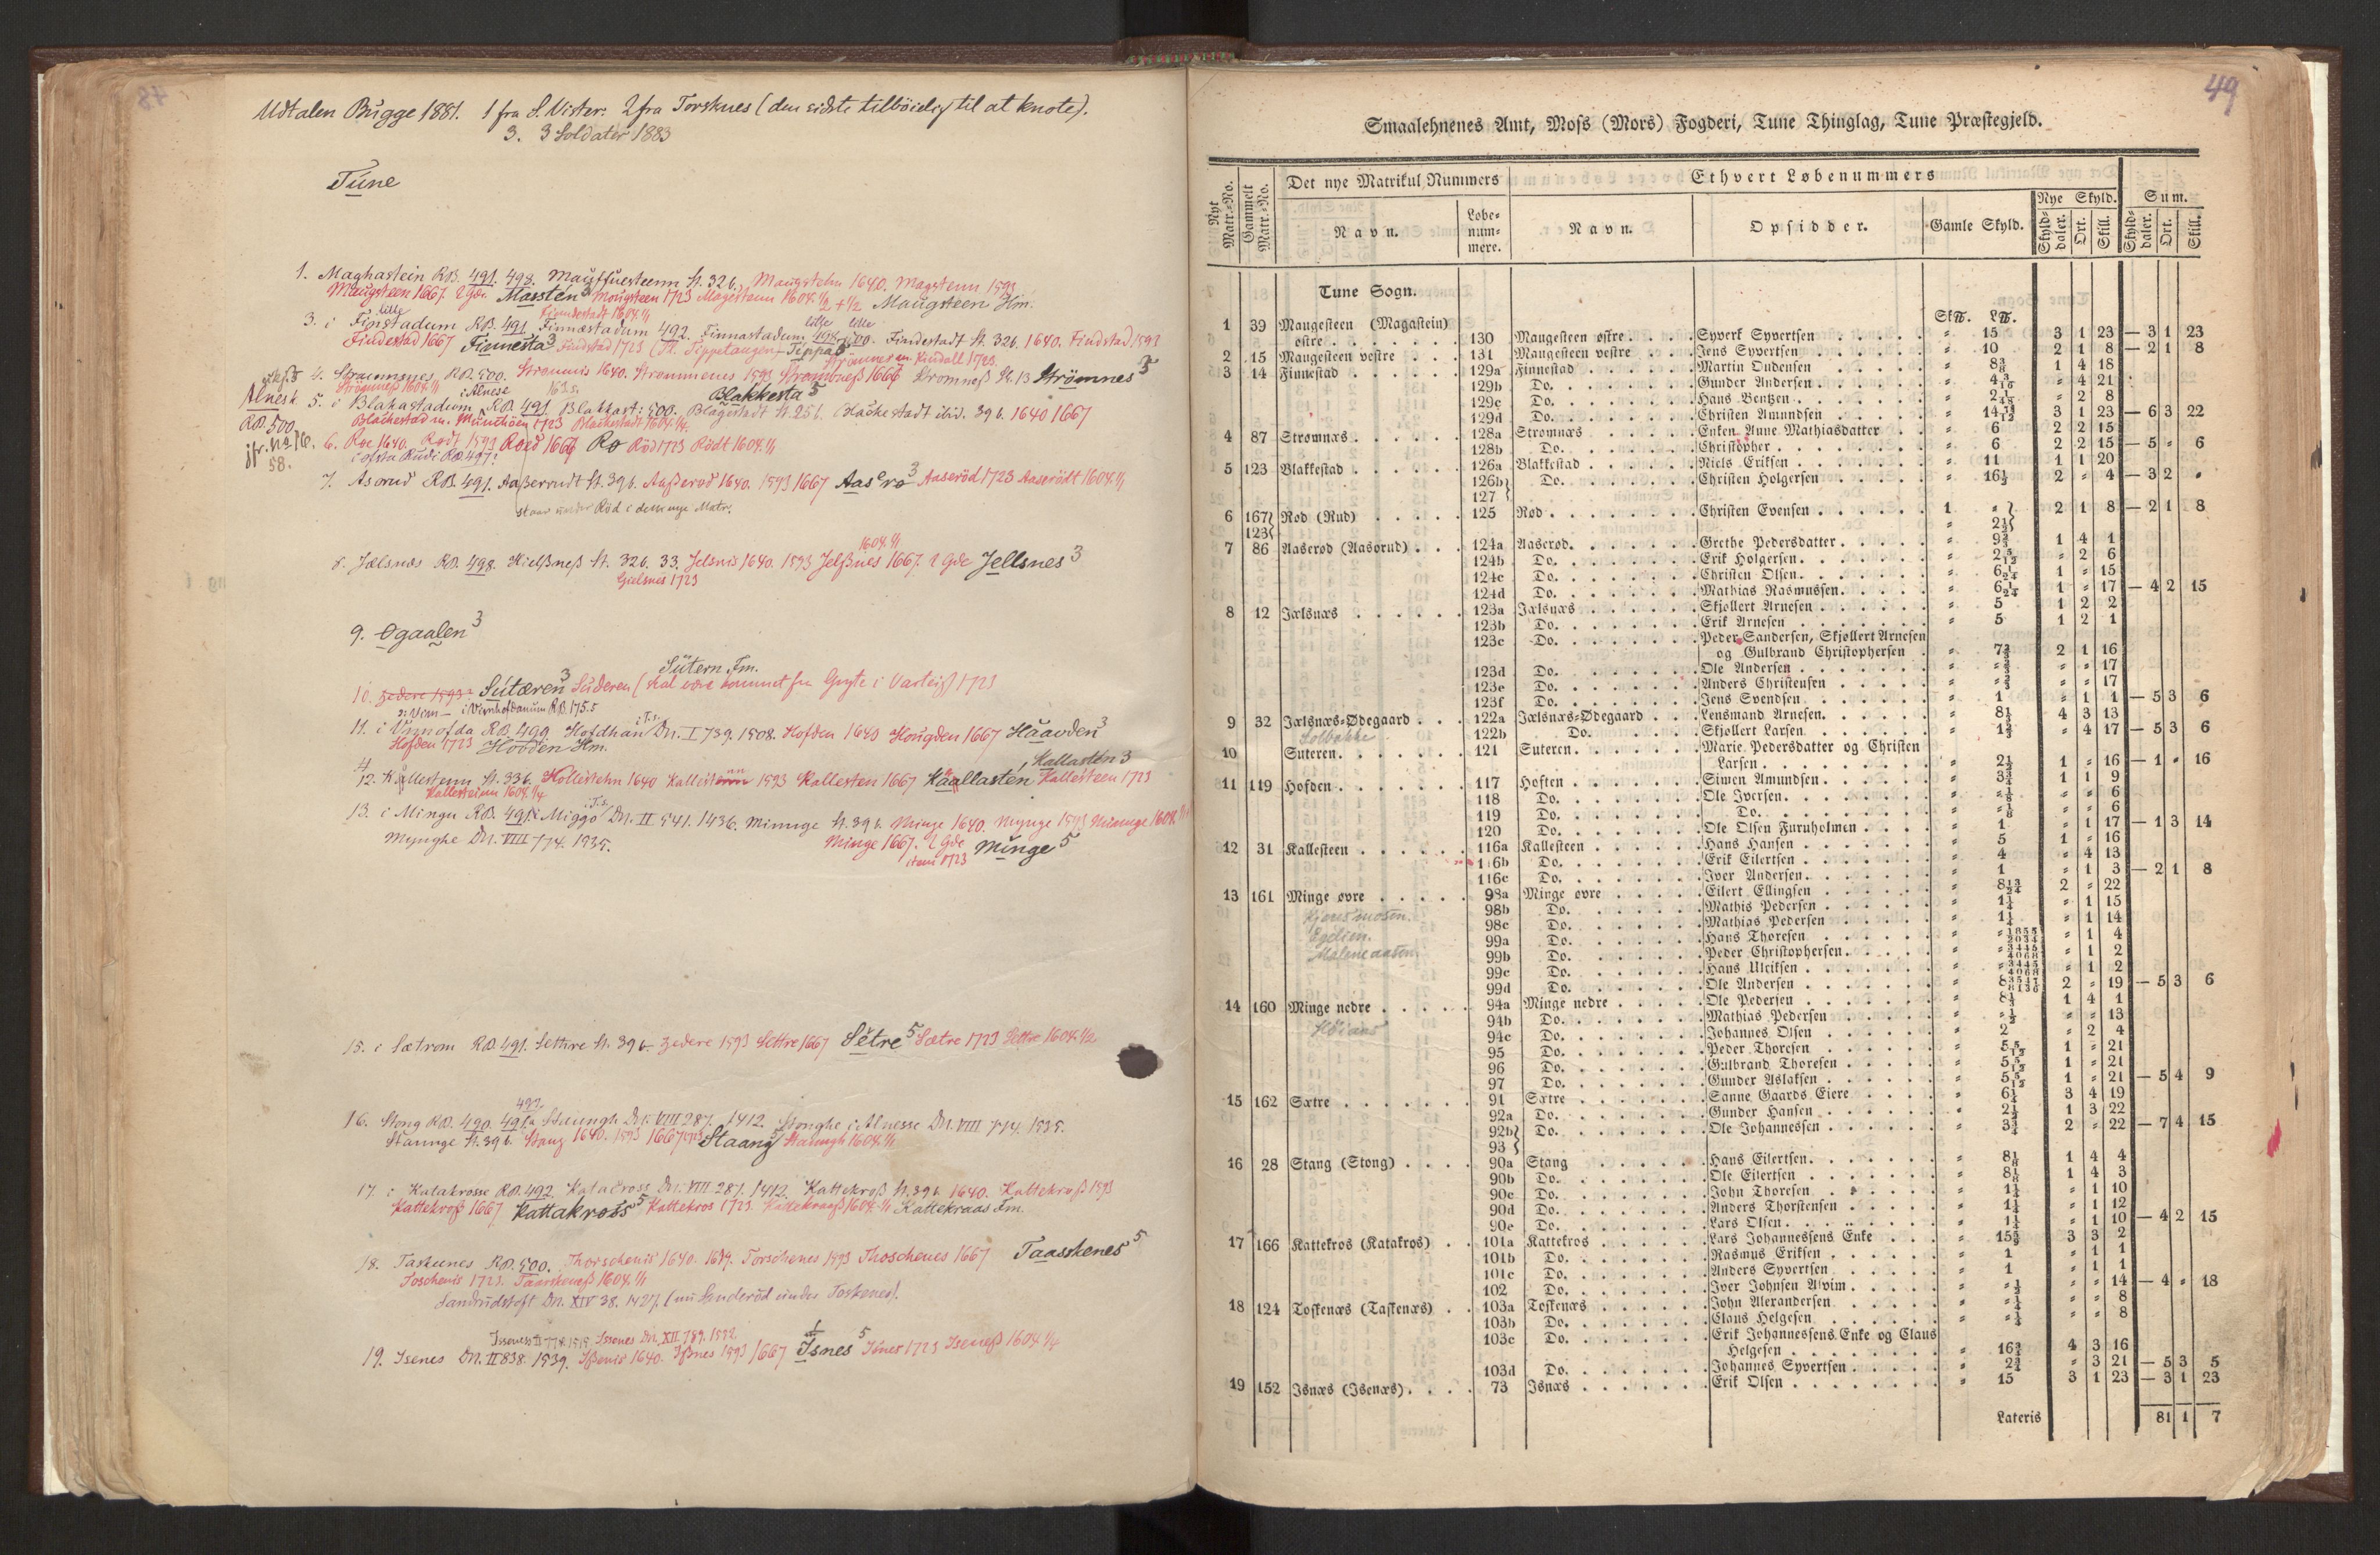 Udtalen Bugge 1881. 1 fra S. Vister. 2 fra Torsknes (den sidste tilböielig til at knote).
3. 3 Soldater 1883
Tune
1. Maghastein RB. 491. 498. Mauffuesteenn St. 32 b. Maugstehn 1640. Magstenn 1593
Maugsteen 1667. 2 Gde. Masstén Mougsteen 1723 Magesteenn 1604. 1/2 + 1/2 Maugsteen Hm.
Finndestadt 1604. 1/1
3. i Finstadum RB. 491 Finnæstadum 492. Finnastadum 498. 500. Findestadt St. 32 b. 1640. Findstad 1593
Findestad 1667 Finnesta 3 Findstad 1723
4. Straumsnes RB. 500. Strömnis 1640. Strømmenes 1593 Strömbneß 1667 Stromneß St. 13 Strömnes 5
Strömneß 1604. 1/1
Alnesk
RB. 500
jfr. No. 16.
58.
Blakkesta 5
5. i Blakastadum RB. 491. Blakkast: 500. Blagestadt St. 25 b. Blackestadt ibid. 39 b. 1640 1667
Blackestad m. Munthöen 1723 Blackestadt 1604. 1/4
6. Roe 1640. Rodt 1593 Roed 1667 Ro Röd 1723 Rödt 1604. 1/1
i øfsta Rudi RB. 497?
7. Asorud RB. 491. Aaßerrudt St. 39 b. Aaßerod 1640. 1593 1667 Aas'ro 3 Aaseröd 1723 Aaserödt 1604. 1/1
staar under Röd i den nye Matr.
1604. 1/1
8. Jælsnæs RB. 498. Hielßneß St. 32 b. 33. Jelsnis 1640. 1593 Jelßnes 1667. 2 Gde Jellsnes 3
Gielsnes 1723
9. Øgaalen 3
Sütern Fm.
10. Zedere 1593? Sutæren 3 Suderen (skal være kommet fra Gryte i Varteig) 1723
i Vimhofdanum RB. 175.5
11. i Vnnofda RB. 499. Hofdhan DN. I 739. 1508. Hofden 1640 Hougden 1667 Haavden 3
Hofden 1723 Hovden Hm.
Kallastén 3
12. Kallestenn St. 33 b. Hollestehn 1640 Kallestenn 1593 Kallesten 1667 Kaallastén Kallesteen 1723
Kallesteinn 1604. 1/4
13. i Mingu RB. 491. i Miggo DN. II 541. 1436. Minnge St. 39 b. Minge 1640. Mynge 1593 Minnge 1604.
Mynghe DN. VIII 774. 1535.
Minge 1667. 2 Gde Minge 5
item 1723
15. i Sætrom RB. 491. Setthre St. 39 b. Zedere 1593 Settre 1667 Sétre 5 Sætre 1723 Settre 1604. 1/2
492.
16. Stong RB. 490. 491. Staungh DN. VIII 287. 1412. Stonghe i Alnesse DN. VIII 774. 1535.
Staunge St. 39 b. Stang 1640. 1593 1667 1723 Staang 5 Staungh 1604. 1/1
17. i Katakrosse RB. 492. Katacross DN. VIII 287. 1412. Kattekroß St. 39 b. 1640. Kattekroß 1593
Kattekroß 1667 Kattakross 5 Kattekros 1723. Kattekraaß 1604. 1/1 Kattekraas Fm.
18. Taskenes RB. 500. Thorschenis 1640. 1639. Torschenes 1593 Thoschenes 1667 Taaskenes 5
Toschenis 1723. Taaskeneß 1604. 1/1
Sandrudstoft DN. XIV 38. 1427. (nu Sanderöd under Toskenes).
Issenes DN. XII 789. 1592.
19. Isenes DN. II 838. 1539. Ißenis 1640. Ißnes 1593 1667 Isnes 5 Isnes 1723 Iseneß 1604 1/4
49
Smaalehnenes Amt, Moss (Mors) Fogderi, Tune Thinglag, Tune Præstegjeld.
Nyt Matr.-No.
Gammelt Matr.-No.
Det nye Matrikul Nummers
Ethvert Løbenummers
Navn.
Løbenummere.
Navn.
Opsidder.
Gamle Skyld.
Nye Skyld.
Sum.
Skylddaler. Ort. Skill. Skylddaler. Ort. Skill.
Tune Sogn.
1 39 Maugesteen (Magastein) østre 130 Maugesteen østre Syverk Syvertsen 15 3 1 23 — 3 1 23
2 15 Maugesteen vestre 131 Maugesteen vestre Jens Syvertsen 10 2 1 8 — 2 1 8
3 14 Finnestad 129a Finnestad Martin Oudensen 8 3/8 1 4 18
129b Do. Gunder Andersen 4 3/16 " 4 21
129c Do. Hans Bentzen 2 1/48 " 2 8
129d Do. Christen Amundsen 3 1 23 — 6 3 22
4 87 Strømnæs 128a Strømnæs Enken Anne Mathiasdatter 6 2 2 15
128b Do. Christopher 6 2 2 15 — 5 " 6
5 123 Blakkestad 126a Blakkestad Niels Eriksen 11 1 1 20
126b 127 Do. Christen Holgersen 16 1/2 2 " 4 — 3 2 "
6 167 123 Rød (Rud) 125 Rød Christen Evensen 1 " 2 1/2 2 1 8 — 2 1 8
7 86 Aaserød (Aasorud) 124a Aaserød Grethe Pedersdatter 9 2/3 1 4 1
124b Do. Erik Holgersen 2 5/12 " 2 6
124c Do. Christen Olsen 6 1/24 1 " 15
124d Do. Mathias Rasmussen 6 1/24 1 " 17 — 4 2 15
8 12 Jælsnæs 123a Jælsnæs Skjøllert Arnesen 5 1 2 2
123b Do. Erik Arnesen 5 1 2 1
123c Do. Peder Sandersen, Skjøllert Arnesen
og Gulbrand Christophersen 7 2/3 2 1 16
123d Do. Ole Andersen 2/3 " " 17
123e Do. Anders Christensen 2/3 " " 17
123f Do. Jens Svendsen 1 " 1 1 — 5 3 6
9 32 Jælsnæs-Ødegaard 122a Jælsnæs-Ødegaard Lensmand Arnesen 8 1/3 4 3 13
Solbakke
122b Do. Skjøllert Larsen 1 2/3 " 4 17 — 5 3 6
10 Suteren 121 Suteren Marie Pedersdatter og Christen
Larsen 2 1/2 1 " 16 — 1 " 16
11 119 Hofden 117 Hoften Simen Amundsen 3 3/4 1 1 9
118 Do. Ole Iversen 1/8 " " 6
119 Do. Do. 1/8 " " 6
120 Do. Ole Olsen Furuholmen 1 " 1 17 — 1 3 14
12 31 Kallesteen 116a Kallesteen Hans Hansen 5 1 " 16
116b Do. Erik Eilertsen 4 " 4 13
116c Do. Iver Andersen 1 " 1 3 — 2 1 8
13 161 Minge øvre 98a Minge øvre Eilert Ellingsen 8 13/24 2 " 22
98b Do. Mathis Pedersen 1 1/4 " 1 15
Kjerismosen.
98c Do. Mathias Pedersen 1 1/4 " 1 14
Egelien.
99a Do. Hans Thoresen 1855/2034 " 1 4
Maleneaasen.
99b Do. Peder Christophersen 3445/4068 " 1 2
99c Do. Hans Ulriksen 3445/4068 " 1 2
99d Do. Ole Andersen 2 " 19 — 5 3 6
14 160 Minge nedre 94a Minge nedre Ole Pedersen 8 1/3 1 4 1
94b Do. Mathias Pedersen 1/2 " " 13
94c Do. Johannes Olsen 2 " 2 4
95 Do. Peder Thoresen 5 5/12 1 " 21
96 Do. Gulbrand Thoresen 5 5/12 1 " 21
97 Do. Gunder Aslaksen 5 5/12 1 " 21 — 5 4 9
15 162 Sætre 91 Sætre Sanne Gaards Eiere 6 1/4 3 4 19
92a Do. Gunder Hansen 2 1/2 1 3 22
92b 93 Do. Ole Johannessen 3 3/4 2 " 22 — 7 4 15
16 28 Stang (Stong) 90a Stang Hans Eilertsen 8 1/8 1 4 4
90b Do. Ole Eilertsen 8 1/8 1 4 3
90c Do. John Thoresen 1 1/4 " 1 10
90d Do. Anders Thorstensen 1 1/4 " 1 12
90e Do. Lars Olsen 1 1/4 " 1 10 — 4 2 15
17 166 Kattekros (Katakros) 101a Kattekros Lars Johannessens Enke 3 3 2
101b Do. Rasmus Eriksen 1 " 1 1
101c Do. Anders Syvertsen 1 " 1 1
102 Do. Iver Johnsen Alvim 1/2 " " 14 — 4 " 18
18 124 Toskenæs (Taskenæs) 103a Toskenæs John Alexandersen 1/4 " " 8
103b Do. Claus Helgesen 1/4 " " 8
103c Do. Erik Johannessens Enke og Claus
Helgesen 16 3/4 4 3 16
103d Do. Johannes Syvertsen 2 3/4 " 3 21 — 5 3 5
19 152 Isnæs (Isenæs) 73 Isnæs Erik Olsen 15 3 1 23 — 3 1 23
Lateris 81 1 7